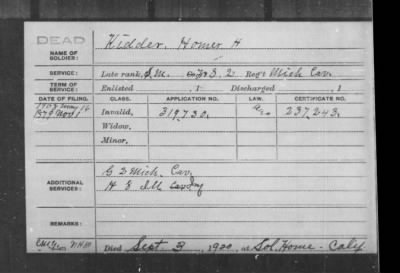 DEAD
NAME OF SOLDIER: Kidder, Homer H
SERVICE: Late rank, S. M. S. 2 Reg't Mich Cav.
TERM OF SERVICE: Enlisted , 1 Discharged , 1
DATE OF FILING. CLASS. APPLICATION NO. LAW. CERTIFICATE NO.
1879 Nov 1 Invalid, 319,730. 237,243.
Widow,
Minor,
ADDITIONAL SERVICES: G 2 Mich. Cav.
H 8 Cav
REMARKS:
Died Sept 3, 1920, at Sol. Home - Calif